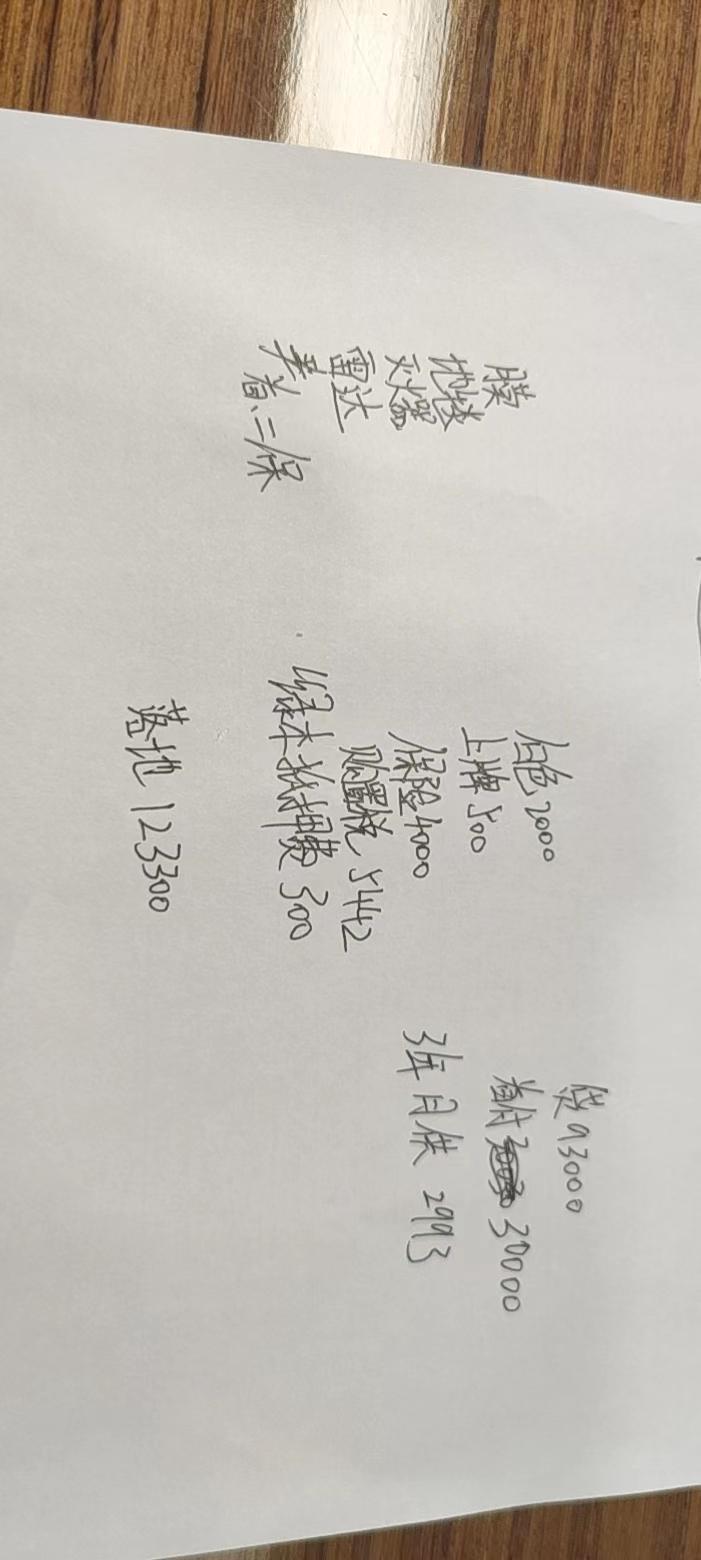 膜
地毯
灭火器
雷达
首、二保
白色2000
上牌500
保险4000
购置税 5442
绿本抵押费 300
落地 123300
贷93000
首付 30000
3年 月供 2993